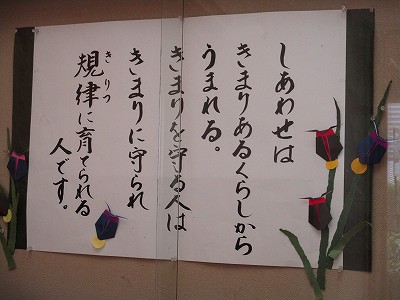 しあわせは
きまりあるくらしから
うまれる。
きまりを守る人は
きまりに守られ
規律に育てられる
きりつ
人です。